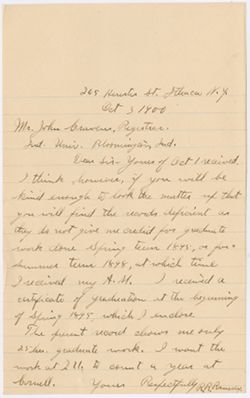 265 Hustis St. Ithaca N.Y.
Oct 3 1900
Mr. John Cravens, Registrar.
Ind. Univ. Bloomington, Ind.
Dear Sir- Yours of Oct 1 received.
I think, however, if you will be
kind enough to look the matter up that
you will find the records deficient as
they do not give me credit for graduate
work done Spring term 1898, or for
summer term 1898, at which time
I received my A.M. I received a
certificate of graduation at the beginning
of Spring 1898, which I enclose.
The present record shows me only
25 hrs. graduate work. I want the
work at I.U. to count a year at
Cornell. Yours Respectfully R.R. Ramsey